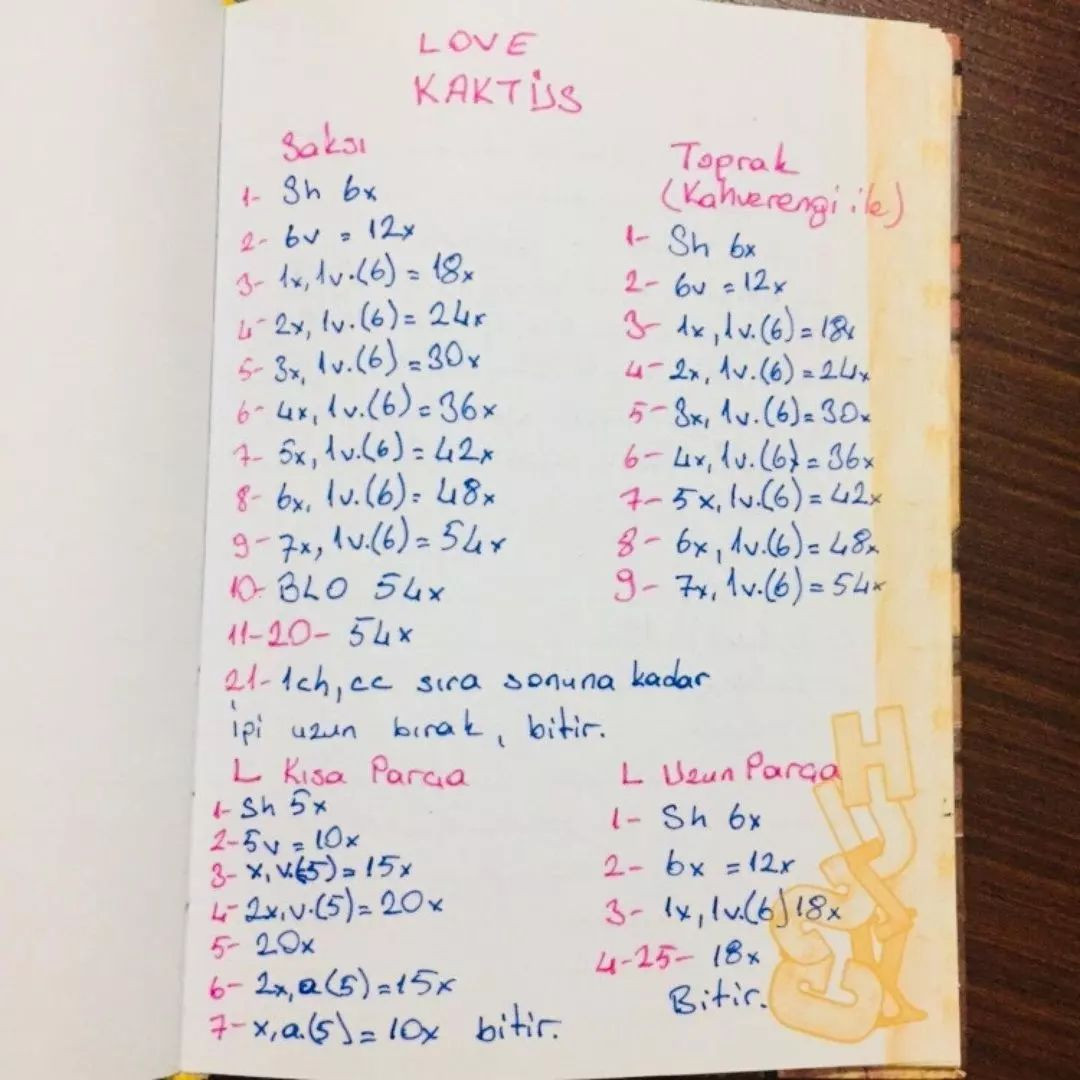 LOVE
KAKTÜS
Saksı
1- Sh 6x
2- 6v = 12x
3- 1x, 1v.(6) = 18x
4- 2x, 1v.(6) = 24x
5- 3x, 1v.(6) = 30x
6- 4x, 1v.(6) = 36x
7- 5x, 1v.(6) = 42x
8- 6x, 1v.(6) = 48x
9- 7x, 1v.(6) = 54x
10- BLO 54x
11-20- 54x
21- 1ch, cc sıra sonuna kadar
ipi uzun bırak, bitir.
Toprak
(Kahverengi ile)
1- Sh 6x
2- 6v = 12x
3- 1x, 1v.(6) = 18x
4- 2x, 1v.(6) = 24x
5- 3x, 1v.(6) = 30x
6- 4x, 1v.(6) = 36x
7- 5x, 1v.(6) = 42x
8- 6x, 1v.(6) = 48x
9- 7x, 1v.(6) = 54x
L Kısa Parça
1- Sh 5x
2- 5v = 10x
3- x, v.(5) = 15x
4- 2x, v.(5) = 20x
5- 20x
6- 2x, a(5) = 15x
7- x, a.(5) = 10x bitir.
L Uzun Parça
1- Sh 6x
2- 6x = 12x
3- 1x, 1v.(6) 18x
4-25- 18x
Bitir.